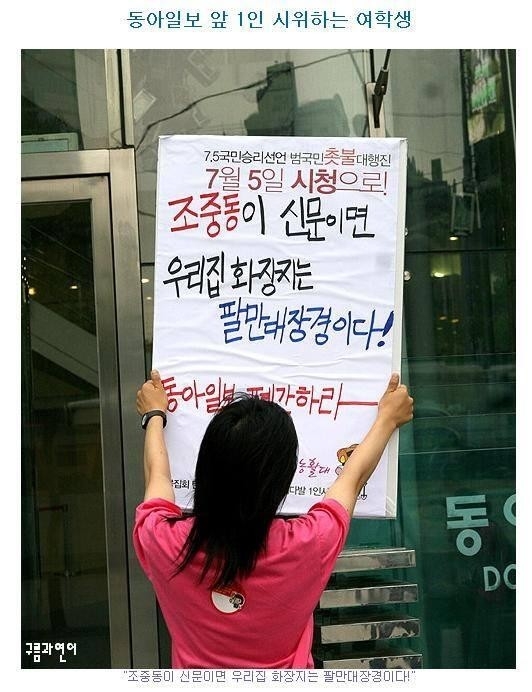 동아일보 앞 1인 시위하는 여학생
7.5국민승리선언 범국민촛불대행진
7월 5일 시청으로!
조중동이 신문이면
우리집 화장지는
팔만대장경이다!
동아일보 폐간하라
농활대
1인시
동
DO
구름과연어
"조중동이 신문이면 우리집 화장지는 팔만대장경이다!"